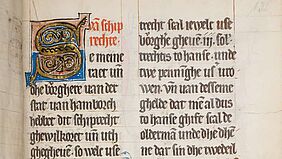 van schip
rechte.
e mene
raet vn
dhe borghere van der
stat van hamborch
hebbet dit schiprecht
ghewilkoret vn vth
ghegheuen so welc vse
recht scal iewelc vse
borghe gheuen ij. sol
rechtes to hanse. vnde
twe penninghe vse vro
wen. vn van dessene
ghelde dar men al dus
to hanse ghift scal de
olderman vnde dhe dhe
ne dar sin dhe twedeil